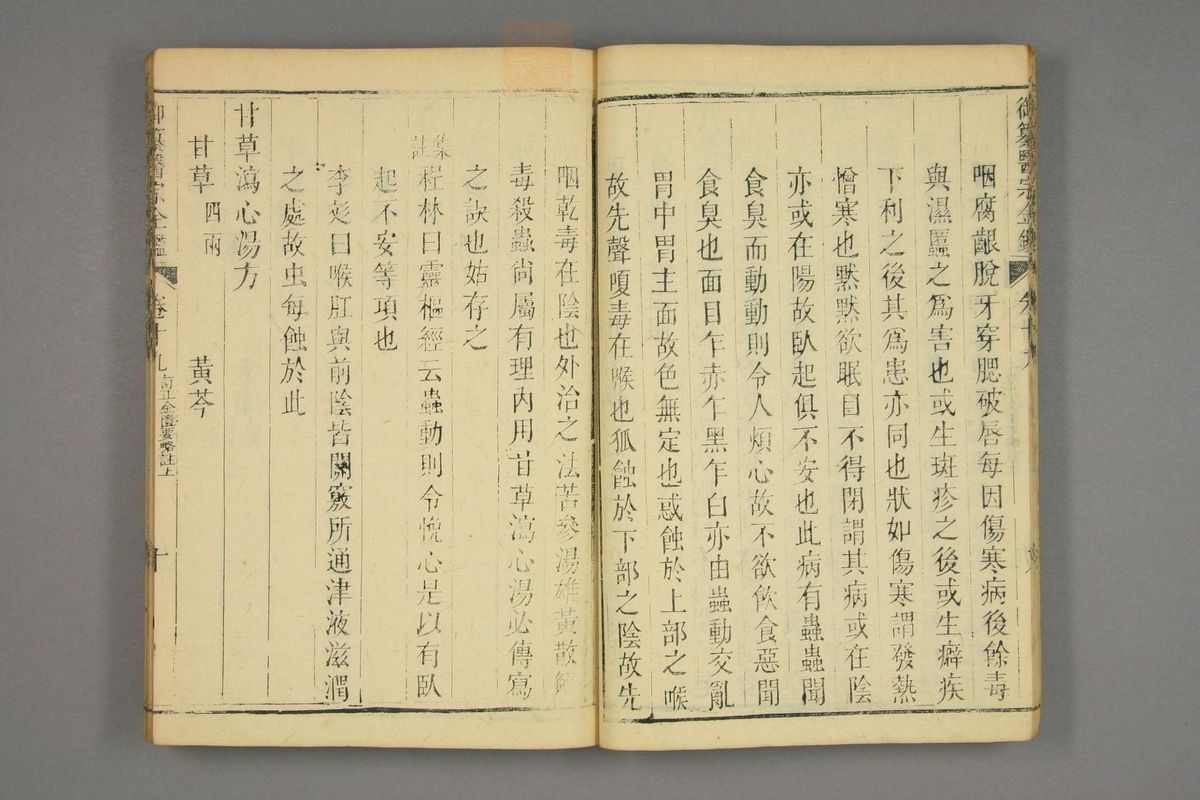 御纂醫宗金鑑 卷十九
咽腐齦脫牙穿腮破唇每因傷寒病後餘毒
與濕䘌之為害也或生斑疹之後或生癖疾
下利之後其為患亦同也狀如傷寒謂發熱
憎寒也默默欲眠目不得閉謂其病或在陰
亦或在陽故臥起俱不安也此病有蟲蟲聞
食臭而動動則令人煩心故不欲飲食惡聞
食臭也面目乍赤乍黑乍白亦由蟲動交亂
胃中胃主面故色無定也惑蝕於上部之喉
故先聲嗄毒在喉也狐蝕於下部之陰故先
咽乾毒在陰也外治之法苦參湯雄黃散解
毒殺蟲尚屬有理內用甘草瀉心湯必傳寫
之訣也姑存之
集註程林曰靈樞經云蟲動則令悗心是以有臥
起不安等項也
李彣曰喉肛與前陰皆關竅所通津液滋潤
之處故虫每蝕於此
甘草瀉心湯方
甘草四兩 黃芩
御纂醫宗金鑑 卷十九 訂正金匱要略註上 十